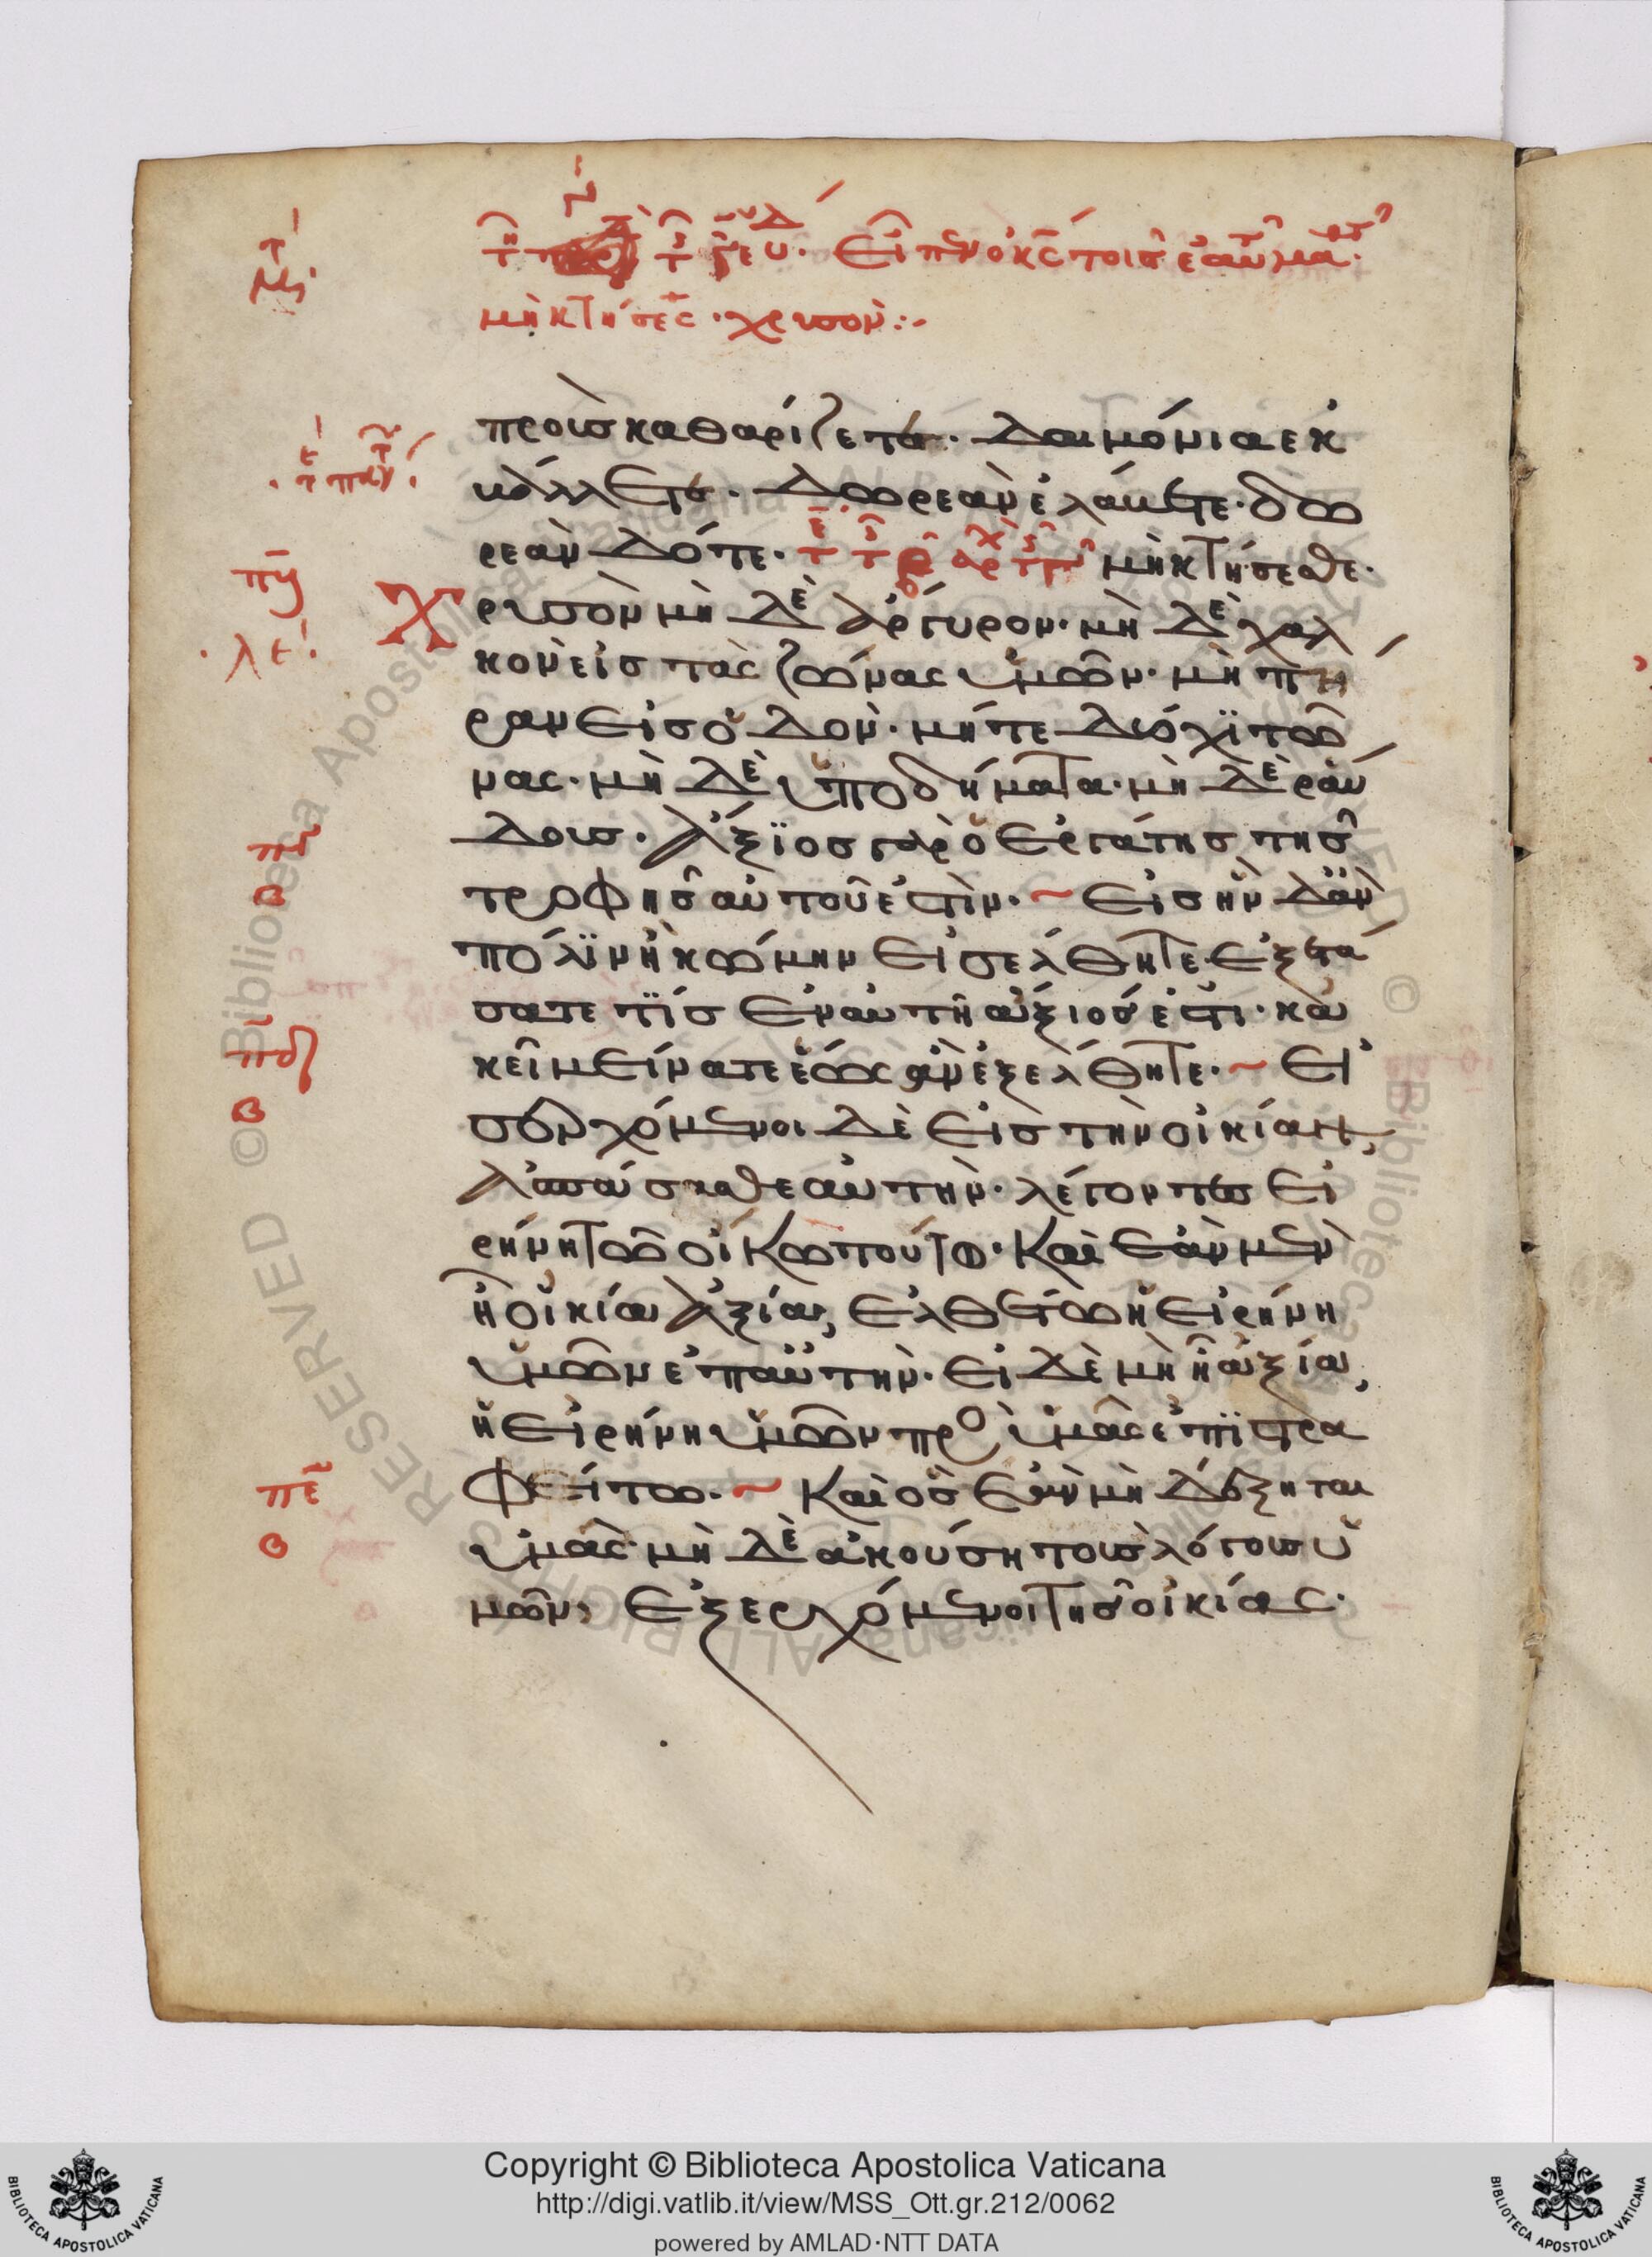 Εἶπεν ὁ κς τοῖς ἑαυτ μαθ
μὴ κτήσεσ · χρυσὸν :·
προὺσ καθαρίζεται · δαιμόνια ἐκ
βάλλεται · δωρεὰν ἐλάβετε · δω
ρεὰν δότε · μὴ κτήσεσθε ·
Χ ρυσὸν μὴ δὲ ἄργυρον · μὴ δὲ χαλ
κὸν εἰσ τὰς ζώνας ὑμῶν · μὴ πή
ραν εἰσ ὁδὸν · μήτε δύο χϊτῶ
νας · μὴ δὲ ὑποδήματα · μὴ δὲ ρά
βδουσ · ἄξϊοσ γὰρ ὁ ἐργάτησ τῆσ
τροφῆσ αὐτοῦ ἐστὶν · ~ Εἰσ ἣν δ' ἂν
πόλϊν ἢ κώμην εἰσέλθητε · ἐξετά
σατε τίσ ἐν αὐτῆ ἄξιοσ ἐστι · κἀ
κεῖ μείνατε ἕως ἂν ἐξέλθητε · ~ Εἰ
σερχόμενοι δὲ εἰσ τὴν οἰκίαν,
ἀσπάσασθε αὐτὴν · λέγοντεσ εἰ
ρήνη τῶ οἴκω τούτω · Καὶ ἐὰν μὲν
ἦ ἡ οἰκία ἀξία, ἐλθέτω ἡ εἰρήνη
ὑμῶν ἐπ αὐτὴν · εἰ δὲ μὴ ἦ ἀξία,
ἡ εἰρήνη ὑμῶν πρὸ ὑμᾶς ἐπϊστρα
φείτω · ~ Καὶ ὃσ ἐὰν μὴ δέξηται
ὑμᾶς μὴ δὲ ἀκούση τοὺσ λόγουσ ὑ
μῶν, ἐξερχόμενοι τῆσ οἰκίας ·
Copyright © Biblioteca Apostolica Vaticana
http://digi.vatlib.it/view/MSS_Ott.gr.212/0062
powered by AMLAD·NTT DATA
BIBLIOTECA APOSTOLICA VATICANA
BIBLIOTECA APOSTOLICA VATICANA